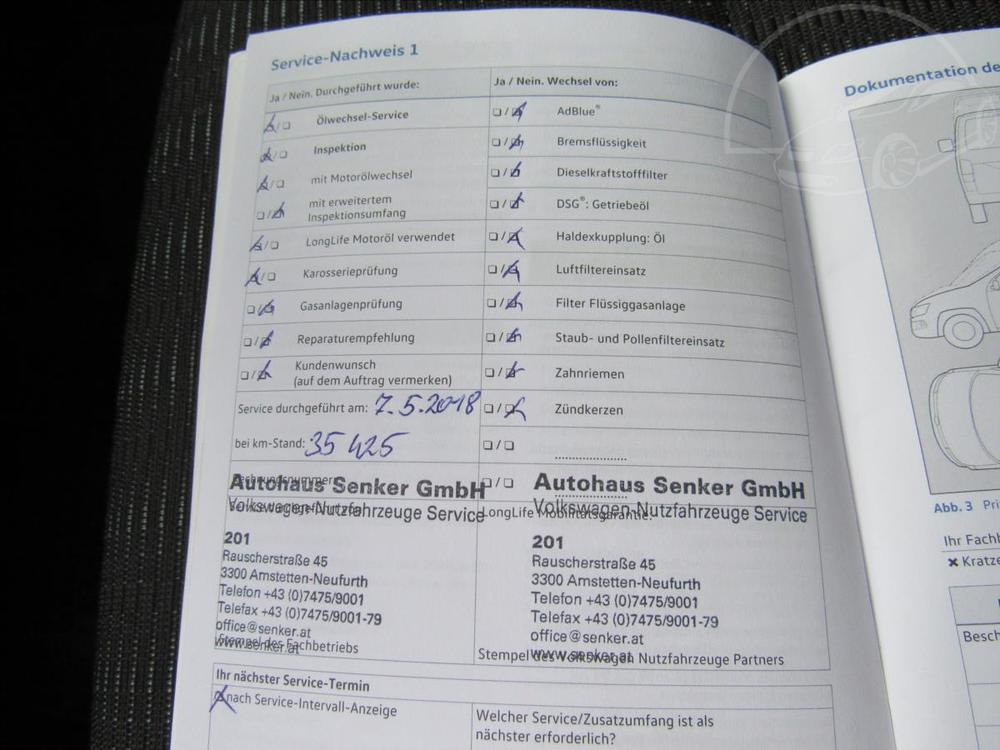 Service-Nachweis 1
Ja / Nein. Durchgeführt wurde:
Ja / Nein. Wechsel von:
Ölwechsel-Service
AdBlue®
Inspektion
Bremsflüssigkeit
mit Motorölwechsel
Dieselkraftstofffilter
mit erweitertem
Inspektionsumfang
DSG®: Getriebeöl
LongLife Motoröl verwendet
Haldexkupplung: Öl
Karosserieprüfung
Luftfiltereinsatz
Gasanlagenprüfung
Filter Flüssiggasanlage
Reparaturempfehlung
Staub- und Pollenfiltereinsatz
Kundenwunsch
(auf dem Auftrag vermerken)
Zahnriemen
Service durchgeführt am: 7.5.2018
Zündkerzen
bei km-Stand: 35 425
Autohaus Senker GmbH
Volkswagen-Nutzfahrzeuge Service
201
Rauscherstraße 45
3300 Amstetten-Neufurth
Telefon +43 (0)7475/9001
Telefax +43 (0)7475/9001-79
office@senker.at
www.senker.at
Stempel des Fachbetriebs
Autohaus Senker GmbH
Volkswagen-Nutzfahrzeuge Service
LongLife Mobilitätsgarantie:
201
Rauscherstraße 45
3300 Amstetten-Neufurth
Telefon +43 (0)7475/9001
Telefax +43 (0)7475/9001-79
office@senker.at
www.senker.at
Stempel des Volkswagen Nutzfahrzeuge Partners
Ihr nächster Service-Termin
nach Service-Intervall-Anzeige
Welcher Service/Zusatzumfang ist als
nächster erforderlich?
Dokumentation de
Abb. 3 Pri
Ihr Fachb
Kratze
Besch